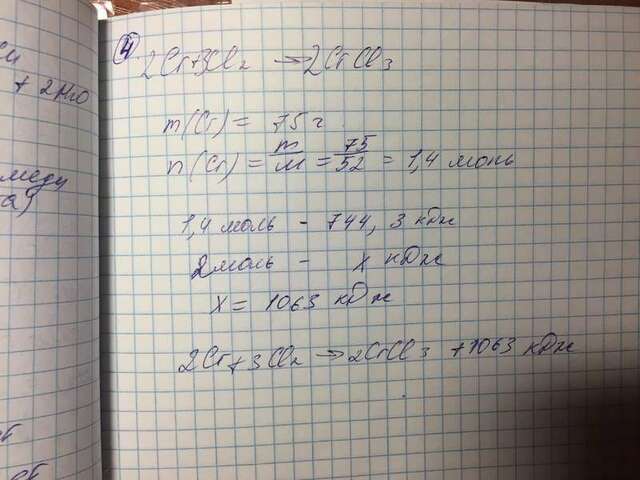 4) 2Cr+3Cl₂ → 2CrCl₃
m(Cr) = 75 г
n(Cr) = m/M = 75/52 = 1,4 моль
1,4 моль - 744, 3 кДж
2 моль - X кДж
X = 1063 кДж
2Cr + 3Cl₂ → 2CrCl₃ + 1063 кДж
+ 2H₂O
а)